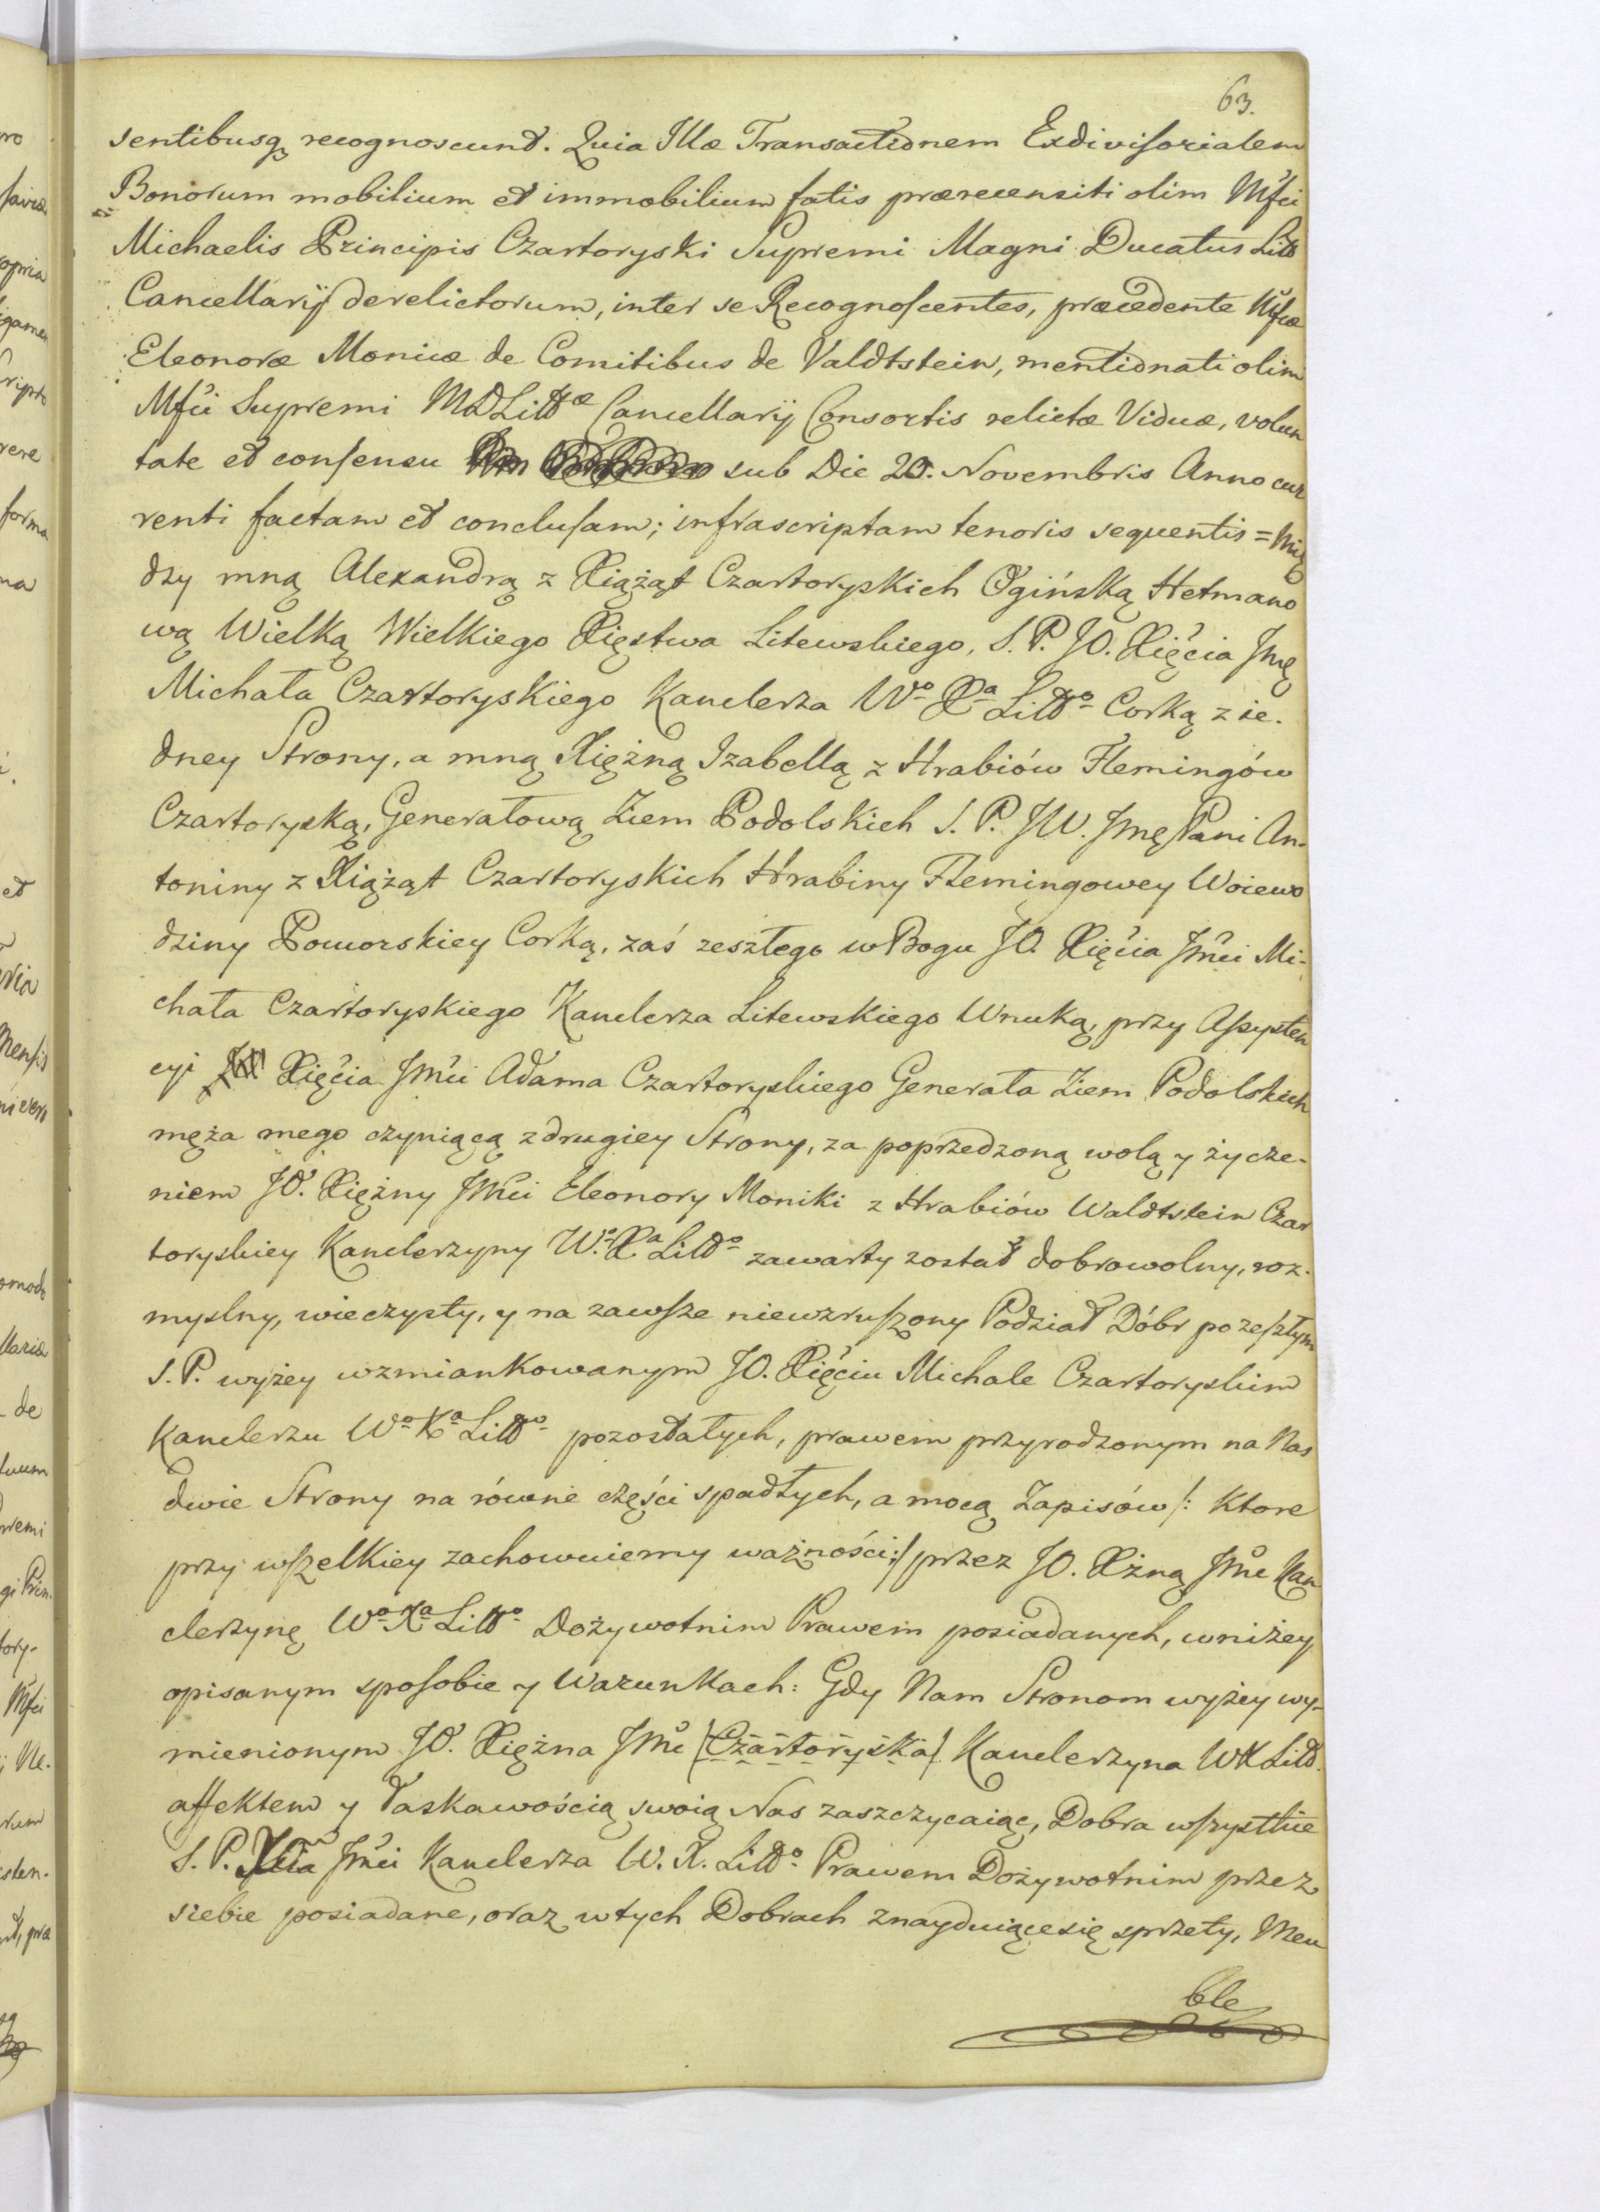 63.
sentibusq recognoscunt. Quia Illæ Transactionem Exdivisorialem
Bonorum mobilium et immobilium fatis prærecensiti olim Mfci
Michaelis Principis Czartoryski Supremi Magni Ducatus Litt
Cancellarij derelictorum, inter se Recognoscentes, præcedente Mfcæ
Eleonoræ Monicæ de Comitibus de Valdtstein, mentionati olim
Mfci Supremi MDLittæ Cancellarij Consortis relictæ Viduæ, volun
tate et consensu sub Die 20. Novembris Anno cur
renti factam et conclusam; infrascriptam tenoris sequentis = Mię
dzy mną Alexandrą z Xiążąt Czartoryskich Ogińską Hetmano
wą Wielką Wielkiego Xięstwa Litewskiego, S. P. JO. Xięcia Jmę
Michała Czartoryskiego Kanclerza Wo Xa Litto Corką z ie.
dney Strony, a mną Xiężną Izabellą z Hrabiów Flemingów
Czartoryską, Generałową Ziem Podolskich S. P. JW. Jmę Pani An-
toniny z Xiążąt Czartoryskich Hrabiny Flemingowey Woiewo
dziny Pomorskiey Corką, zaś zeszłego w Bogu JO. Xięcia Jmci Mi-
chała Czartoryskiego Kanclerza Litewskiego Wnuką, przy Assysten
cyi Xięcia Jmci Adama Czartoryskiego Generała Ziem Podolskich
męża mego czyniącą z drugiey Strony, za poprzedzoną wolą y życze-
niem JO. Xiężny Jmci Eleonory Moniki z Hrabiów Waldtstein Czar
toryskiey Kanclerzyny Wo Xa Litto zawarty został dobrowolny, roz-
myslny, wieczysty, y na zawsze niewzruszony Podział Dóbr po zeszłym
S. P. wyżey wzmiankowanym JO. Xięciu Michale Czartoryskim
Kanclerzu Wo Xa Litto pozostałych, prawem przyrodzonym na Nas
dwie Strony na równe części spadłych, a mocą Zapisów /: ktore
przy wszelkiey zachowuiemy ważności :/ przez JO. Xżną Jmc Kan
clerzynę Wo Xa Litto Dożywotnim Prawem posiadanych, w niżey
opisanym sposobie y Warunkach: Gdy Nam Stronom wyżey wy-
mienionym JO. Xiężna Jmc (Czartoryska) Kanclerzyna WXLitt.
affektem y łaskawością swoią Nas zaszczycaiąc, Dobra wszystkie
S. P. Xcia Jmci Kanclerza W. X. Litto Prawem Dożywotnim przez
siebie posiadane, oraz w tych Dobrach znayduiące się sprzęty, Meu
ble